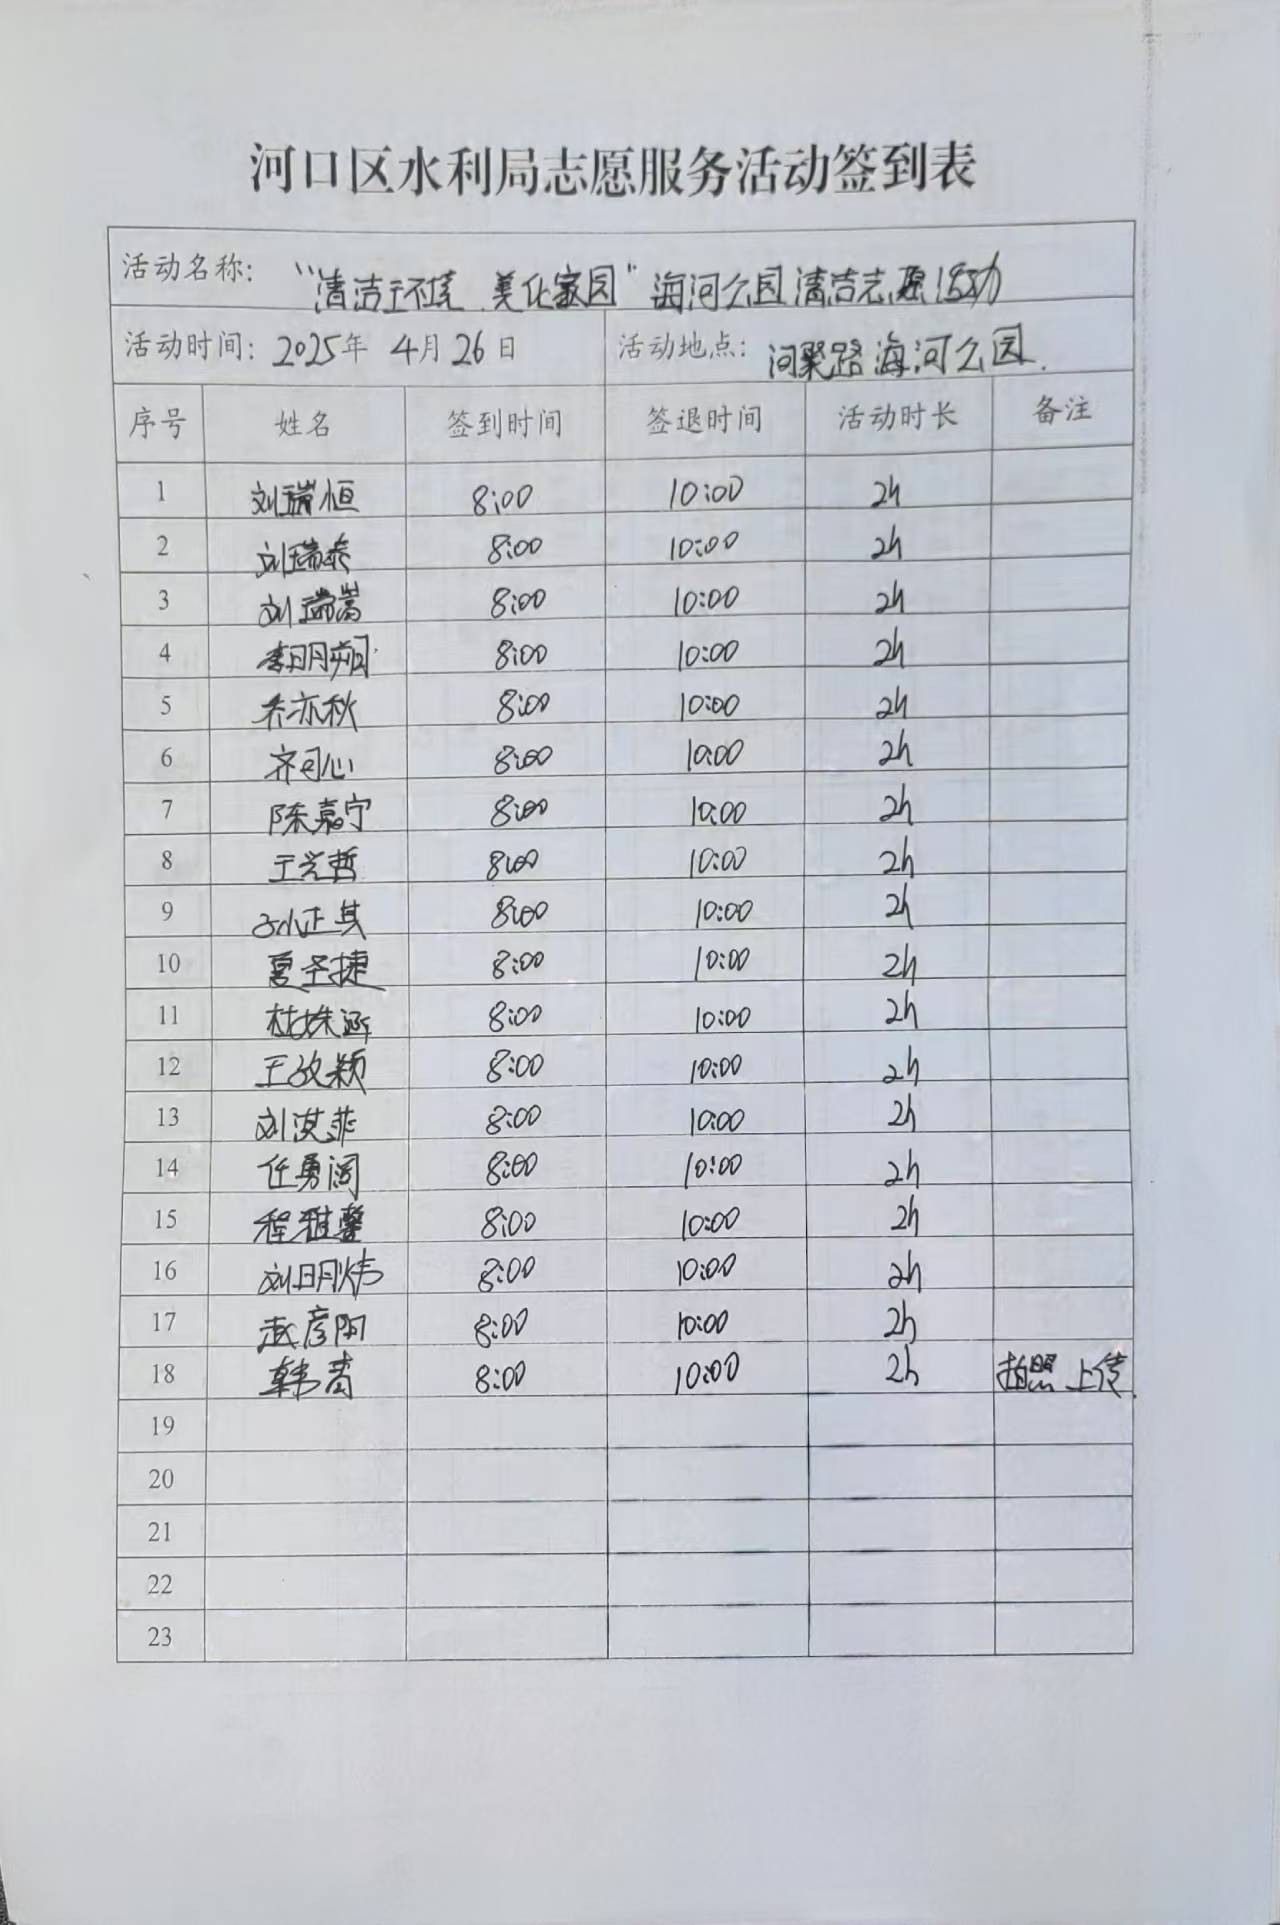 河口区水利局志愿服务活动签到表
活动名称: “清洁环境 美化家园”海河公园清洁志愿活动
活动时间: 2025年 4月26日 活动地点: 河聚路海河公园.
序号 姓名 签到时间 签退时间 活动时长 备注
1 刘瑞恒 8:00 10:00 2h
2 刘瑞泰 8:00 10:00 2h
3 刘瑞嵩 8:00 10:00 2h
4 李明朔 8:00 10:00 2h
5 乔亦秋 8:00 10:00 2h
6 齐可心 8:00 10:00 2h
7 陈嘉宁 8:00 10:00 2h
8 王光哲 8:00 10:00 2h
9 孙正其 8:00 10:00 2h
10 夏圣捷 8:00 10:00 2h
11 杜姝涵 8:00 10:00 2h
12 王政颖 8:00 10:00 2h
13 刘淇菲 8:00 10:00 2h
14 任勇阁 8:00 10:00 2h
15 程雅馨 8:00 10:00 2h
16 刘明炜 8:00 10:00 2h
17 赵彦阳 8:00 10:00 2h
18 韩菁 8:00 10:00 2h 拍照上传.
19
20
21
22
23